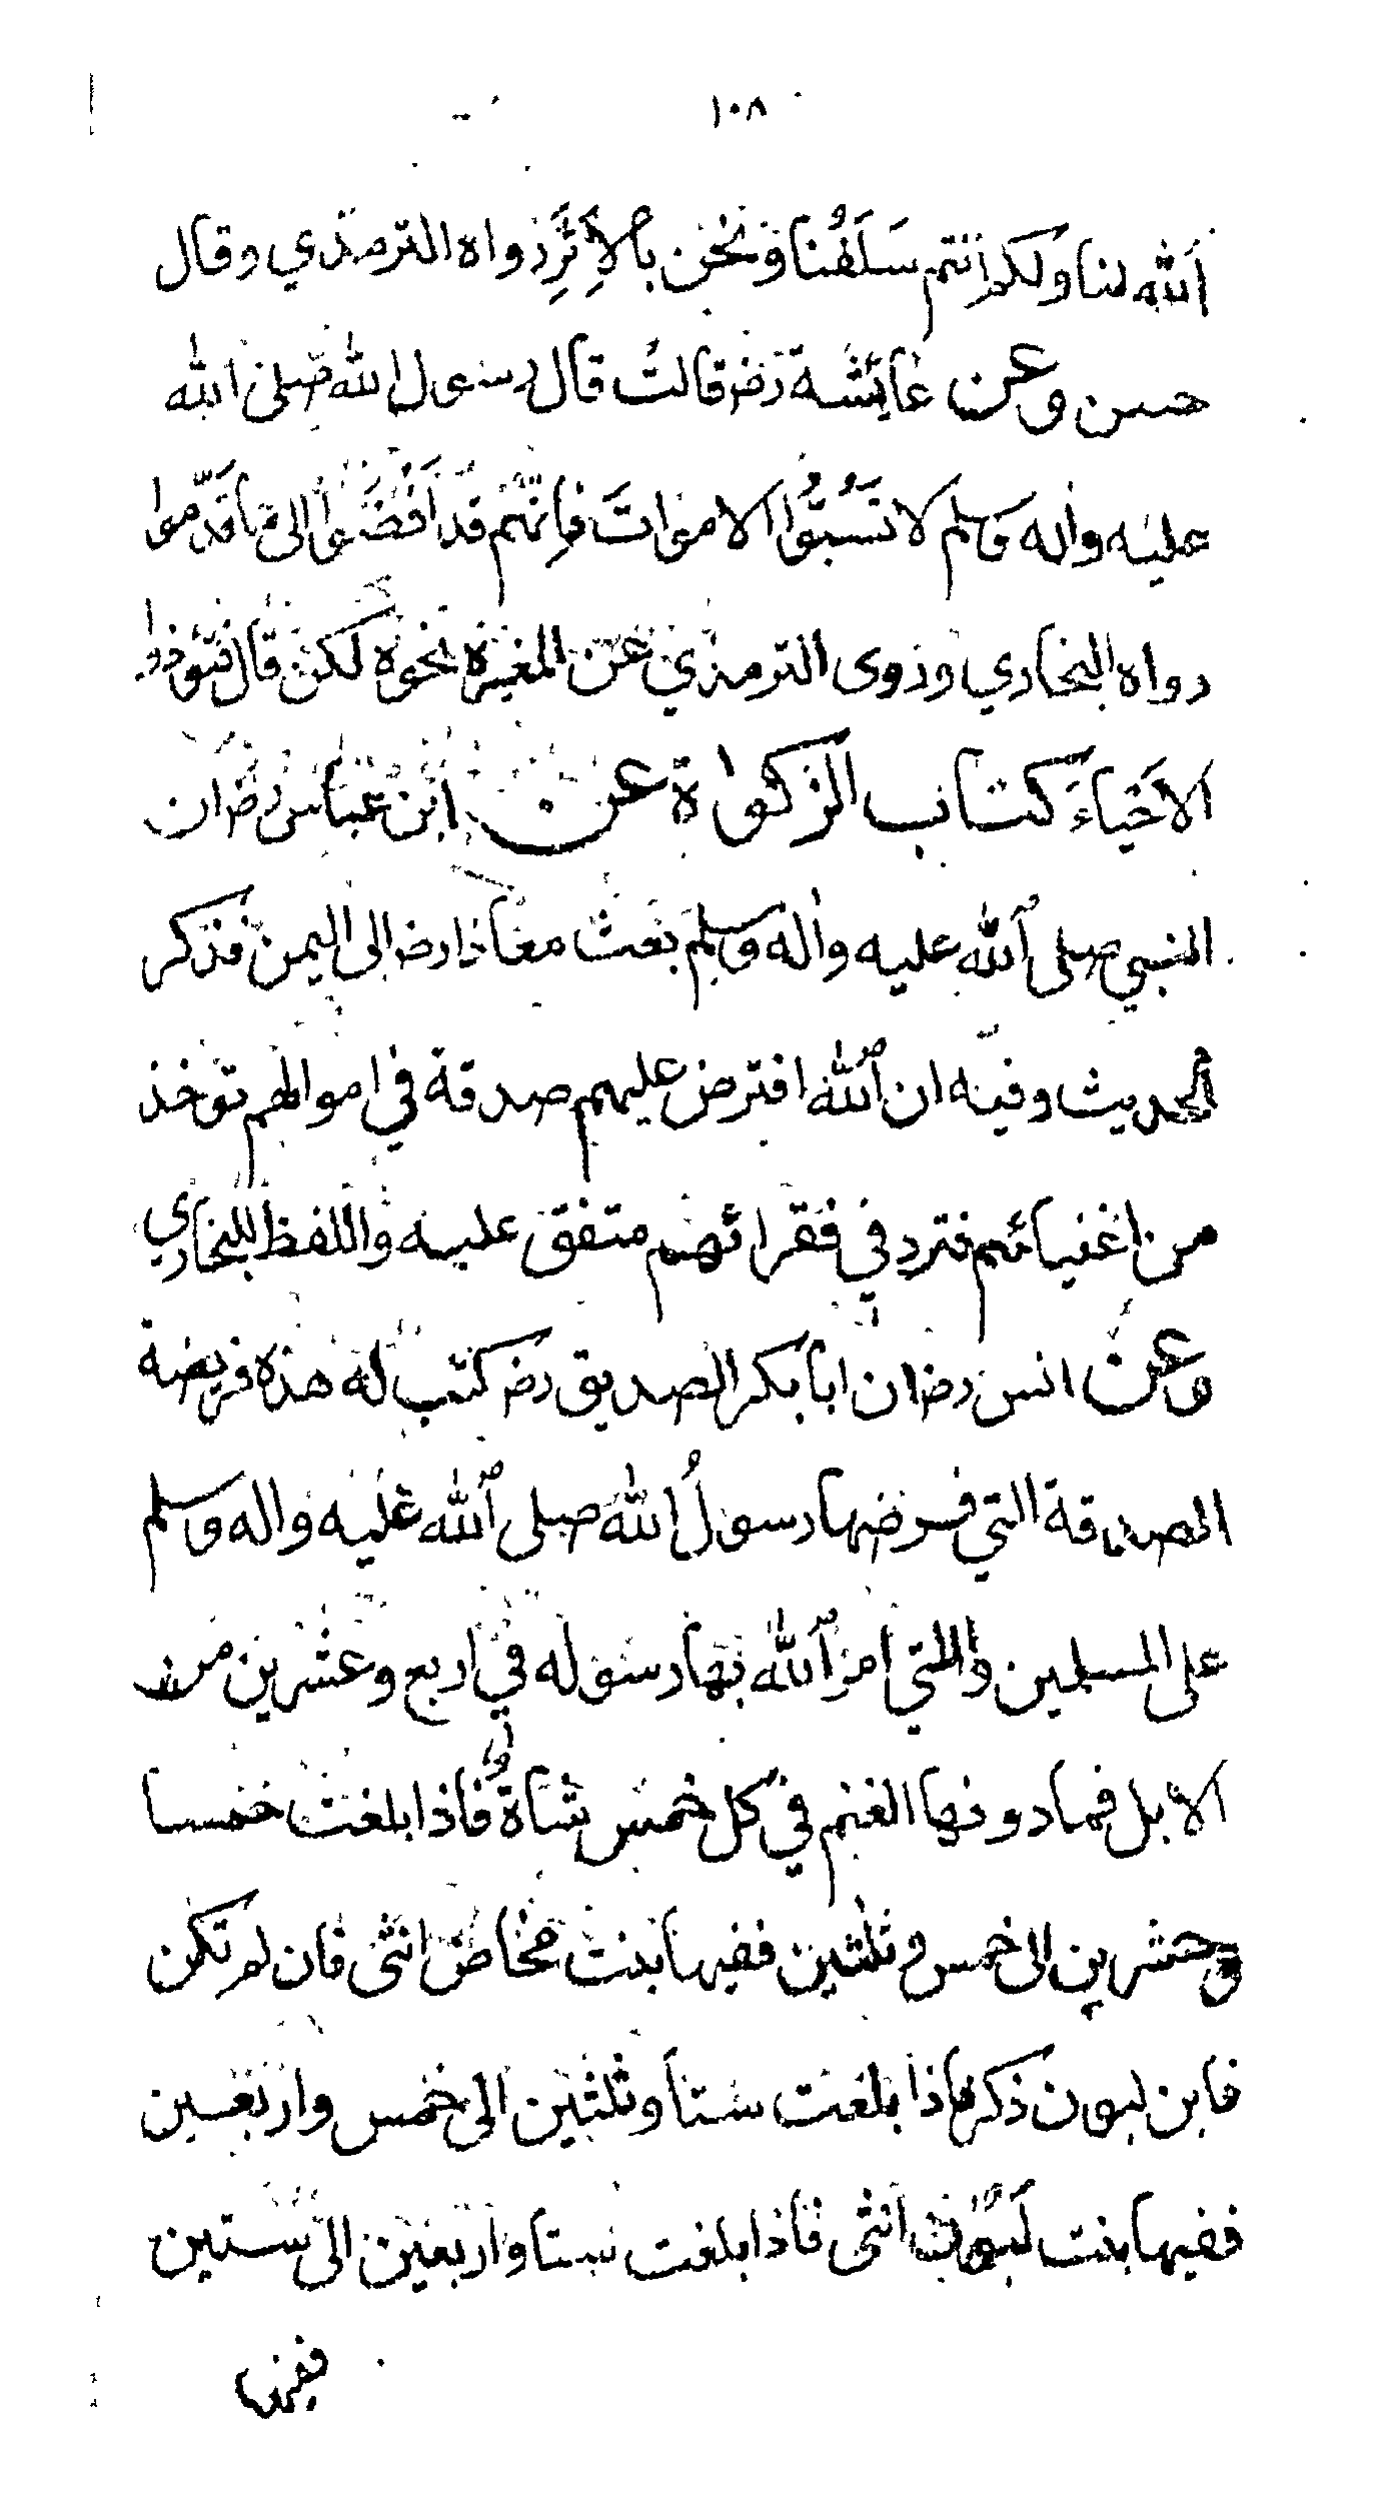 ١٠٨
الله لنا ولكم انتم سَلَفُنا ونحن بالاَثَرِ رواه الترمذي وقال
حسن وعن عائشة رض قالت قال رسول الله صلى الله
عليه واله وسلم لا تَسُبُّوا الاموات فانهم قد اَفْضَوا الى ما قَدّموا
رواه البخاري وروى الترمذي عن المغيرة نحوه لكن قال فتؤذوا
الاحياءَ كتاب الزكواة عن ابن عباس رض ان
النبي صلى الله عليه واله وسلم بعث معاذا رض الى اليمن فذكر
الحديث وفيه ان الله افترض عليهم صدقة في اموالهم توخذ
من اغنيائهم فترد في فقرائهم متفق عليه واللفظ للبخاري
وعن انس رض ان ابا بكر الصديق رض كتب له هذه فريضة
الصدقة التي فرضها رسولُ الله صلى الله عليه واله وسلم
على المسلمين والتي امر الله بها رسوله في اربع وعشرين من
الابل فما دونها الغنم في كل خمس شاةٌ فاذا بلغت خمسا
وعشرين الى خمس وثلثين ففيها بنت مخاض انثى فان لم تكن
فابن لبون ذكر فاذا بلغت ستا وثلثين الى خمس واربعين
ففيها بنت لَبون انثى فاذا بلغت ستا واربعين الى ستين
ففيها